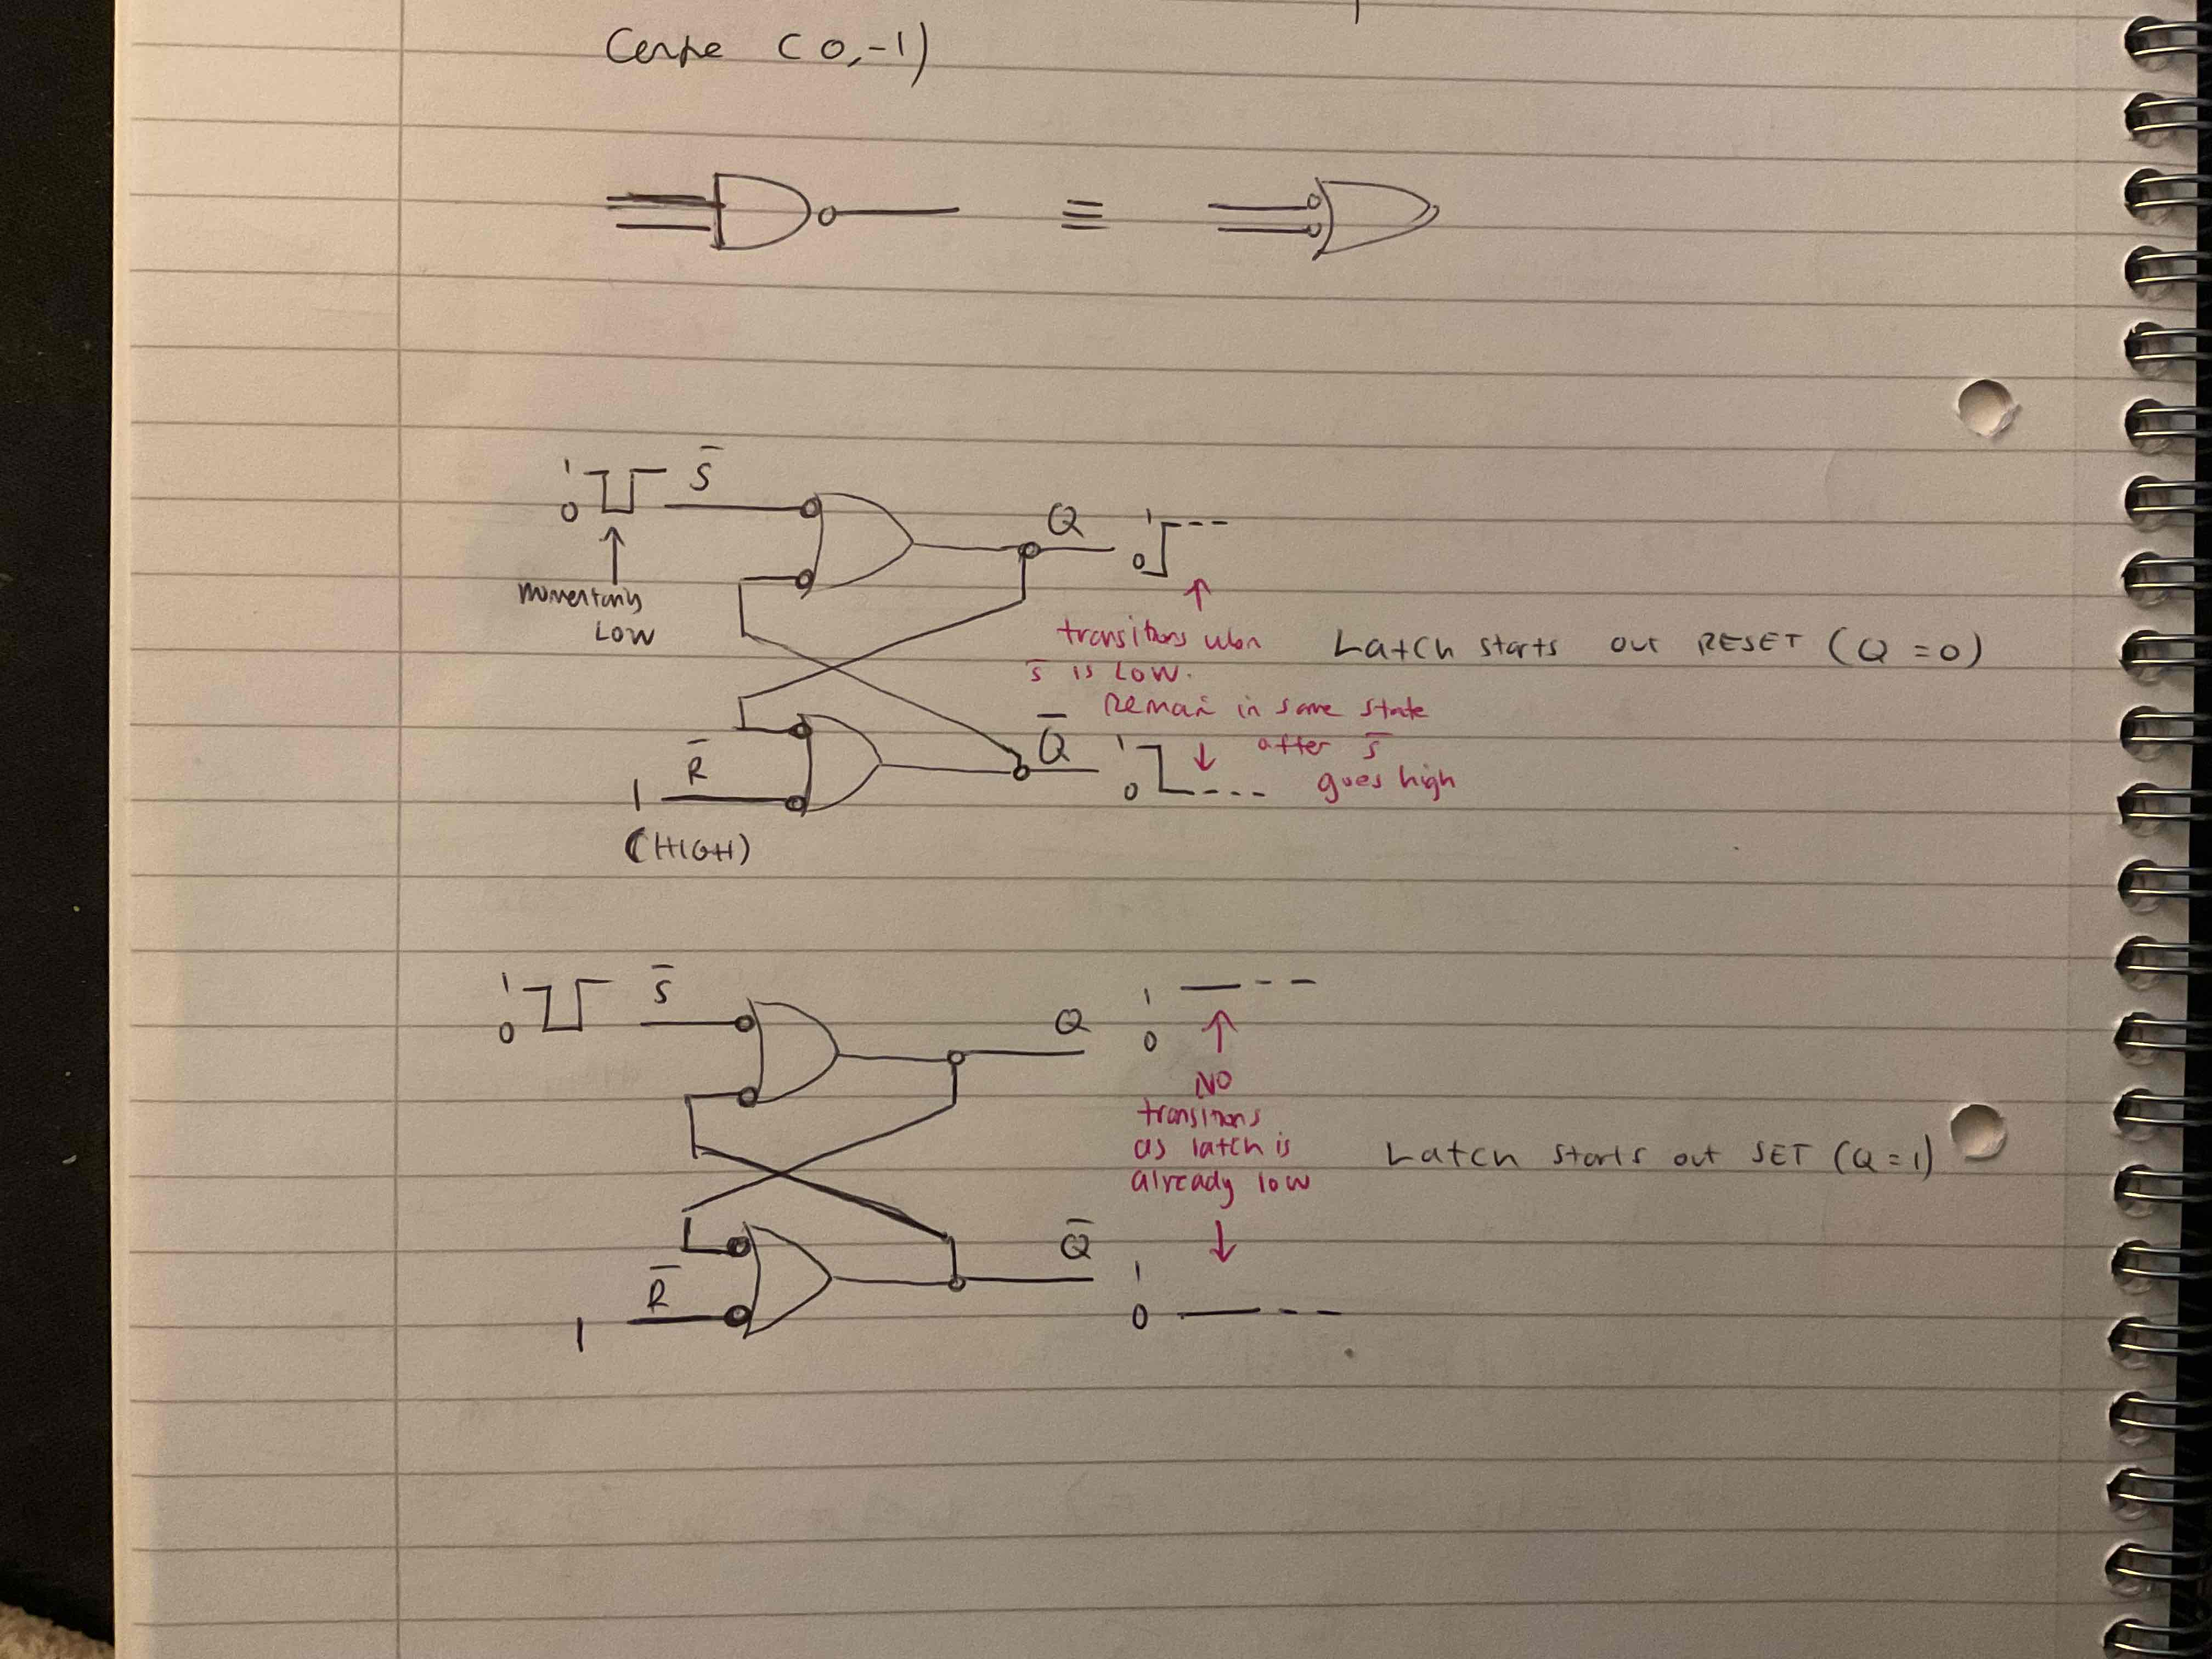 (0,-1)
≡
1 S̅
0
Q 1
0
Momentary
LOW
transitions when
s̅ is LOW.
Latch starts out RESET (Q = 0)
Remain in same state
after s̅
goes high
Q̅ 1
0
R̅
1
(HIGH)
1 S̅
0
Q 1
0
NO
transitions
as latch is
already low
Latch starts out SET (Q = 1)
Q̅ 1
0
R̅
1